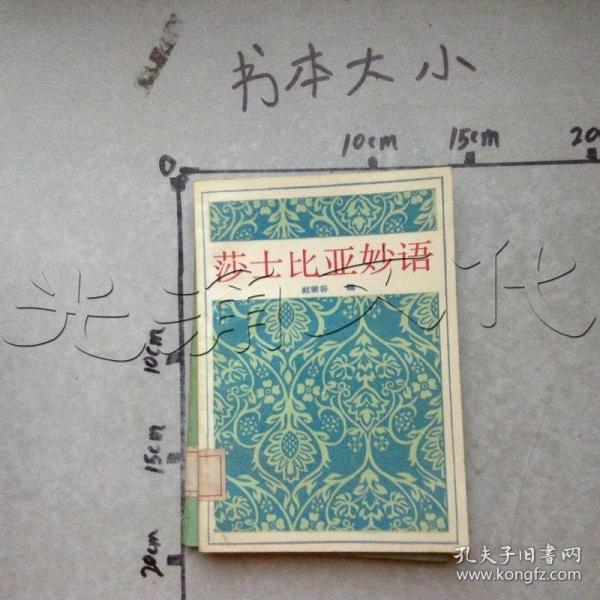 书本大小
10cm
15cm
20
0
莎士比亚妙语
赵若谷 编
光角文化
10cm
15cm
20cm
孔夫子旧书网
www.kongfz.com